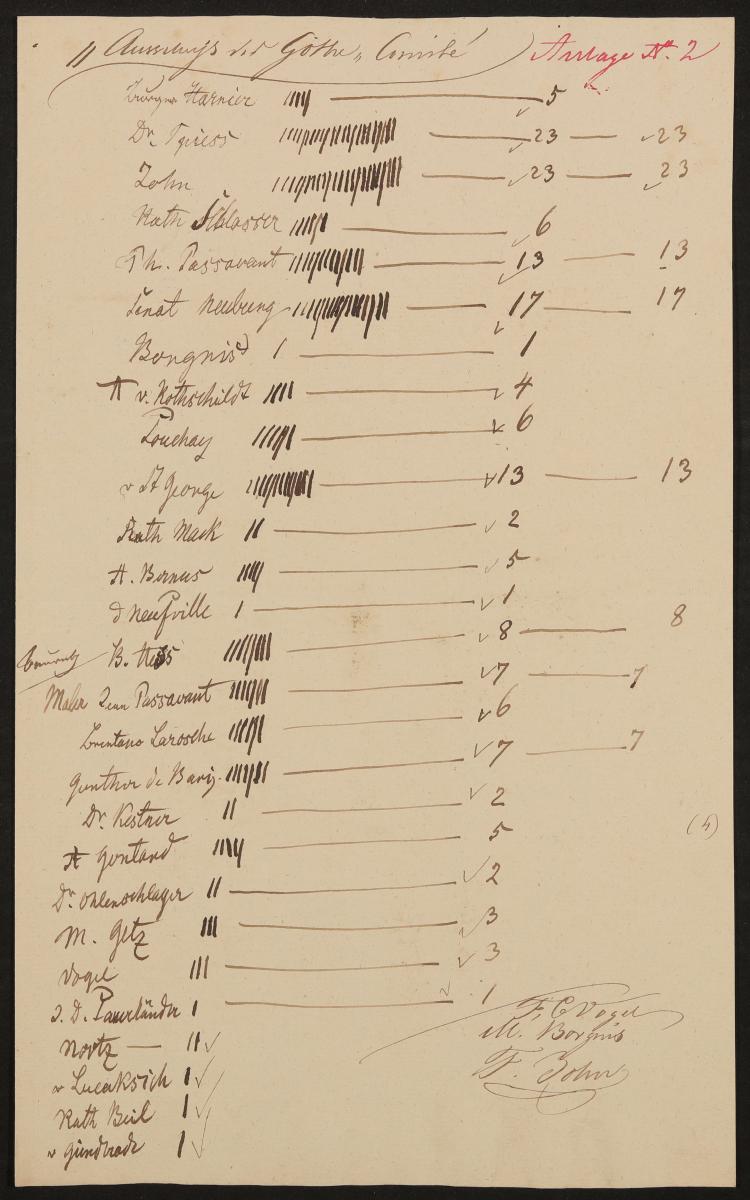 " Ausschuss des Göthe „ Comité Anlage N. 2
Harnier 5
Dr. Spiess 23 23
John 23 23
Rath Schlosser 6
Ph. Passavant 13 13
Senat Neuburg 17 17
Borgnis 1
A v. Rothschildt 4
Souchay 6
v St George 13 13
Rath Mack 2
A. Bernus 5
d Neufville 1
B. Hess 8 8
Maler Passavant 7 7
Brentano Larosche 6
Gonthor de Bary. 7 7
Dr. Kestner 2
A Gontard 5 (4)
Dr. Ohlenschlager 2
M. Getz 3
Vogel 3
J. D. Sauerländer 1
F. C. Vogel
Nortz
M. Borgnis
v Lucaksich
F. John
Rath Beil
v Günderode